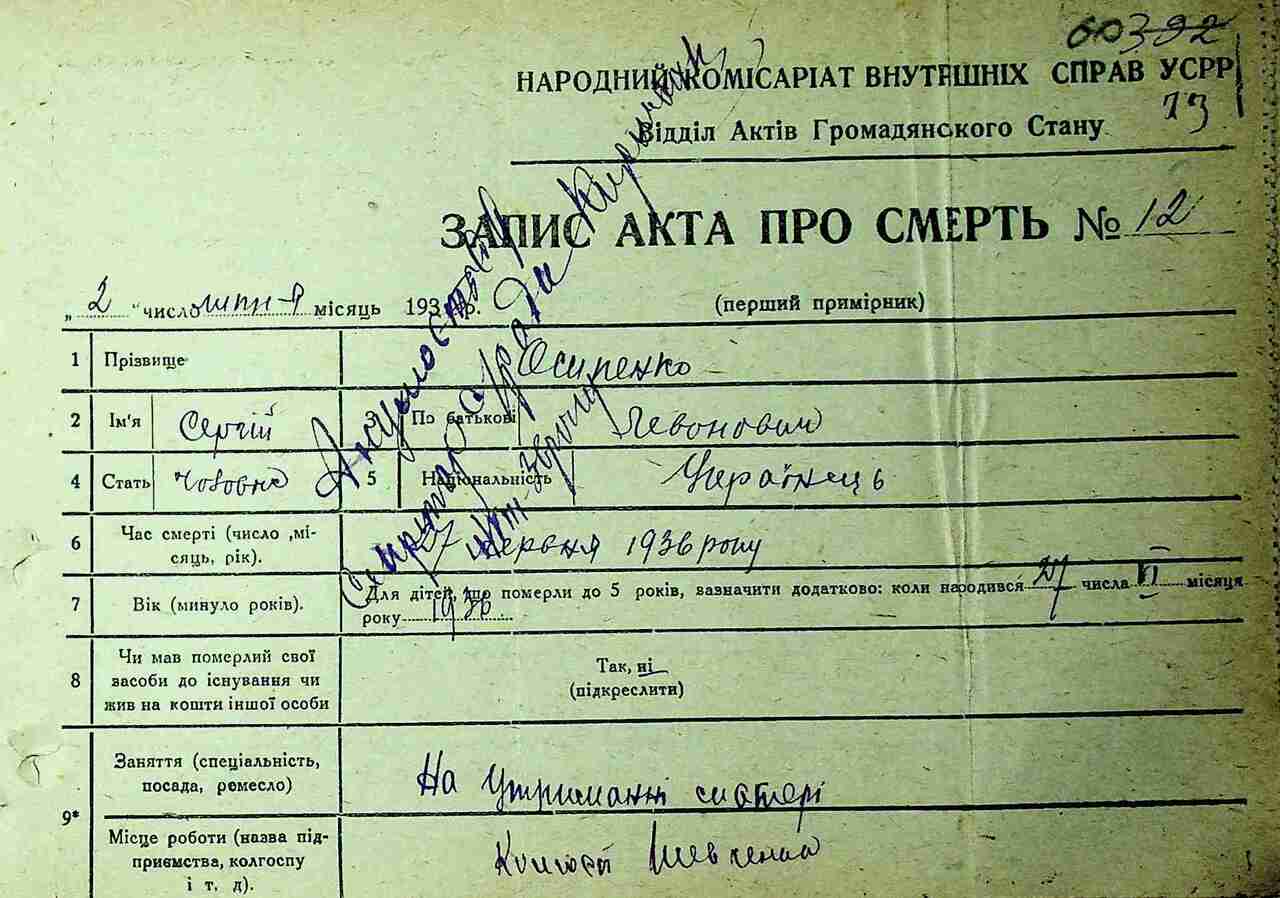 60392
НАРОДНИЙ КОМІСАРІАТ ВНУТРІШНІХ СПРАВ УСРР
13
Відділ Актів Громадянского Стану
ЗАПИС АКТА ПРО СМЕРТЬ № 12
„ 2 " число липня місяць 193 р.
(перший примірник)
1 Прізвище Осипенко
2 Ім'я Сергій 3 По батькові Левонович
4 Стать Чоловіча 5 Національність Українець
6 Час смерті (число ,мі-
сяць, рік). 27 червня 1936 року
7 Вік (минуло років). Для дітей, що померли до 5 років, зазначити додатково: коли народився 27 числа VI місяця
року 1936
8 Чи мав померлий свої
засоби до існування чи
жив на кошти іншої особи
Так, ні
(підкреслити)
9* Заняття (спеціальність,
посада, ремесло) На утриманні матері
Місце роботи (назва під-
приємства, колгоспу
і т. д). Шевченка